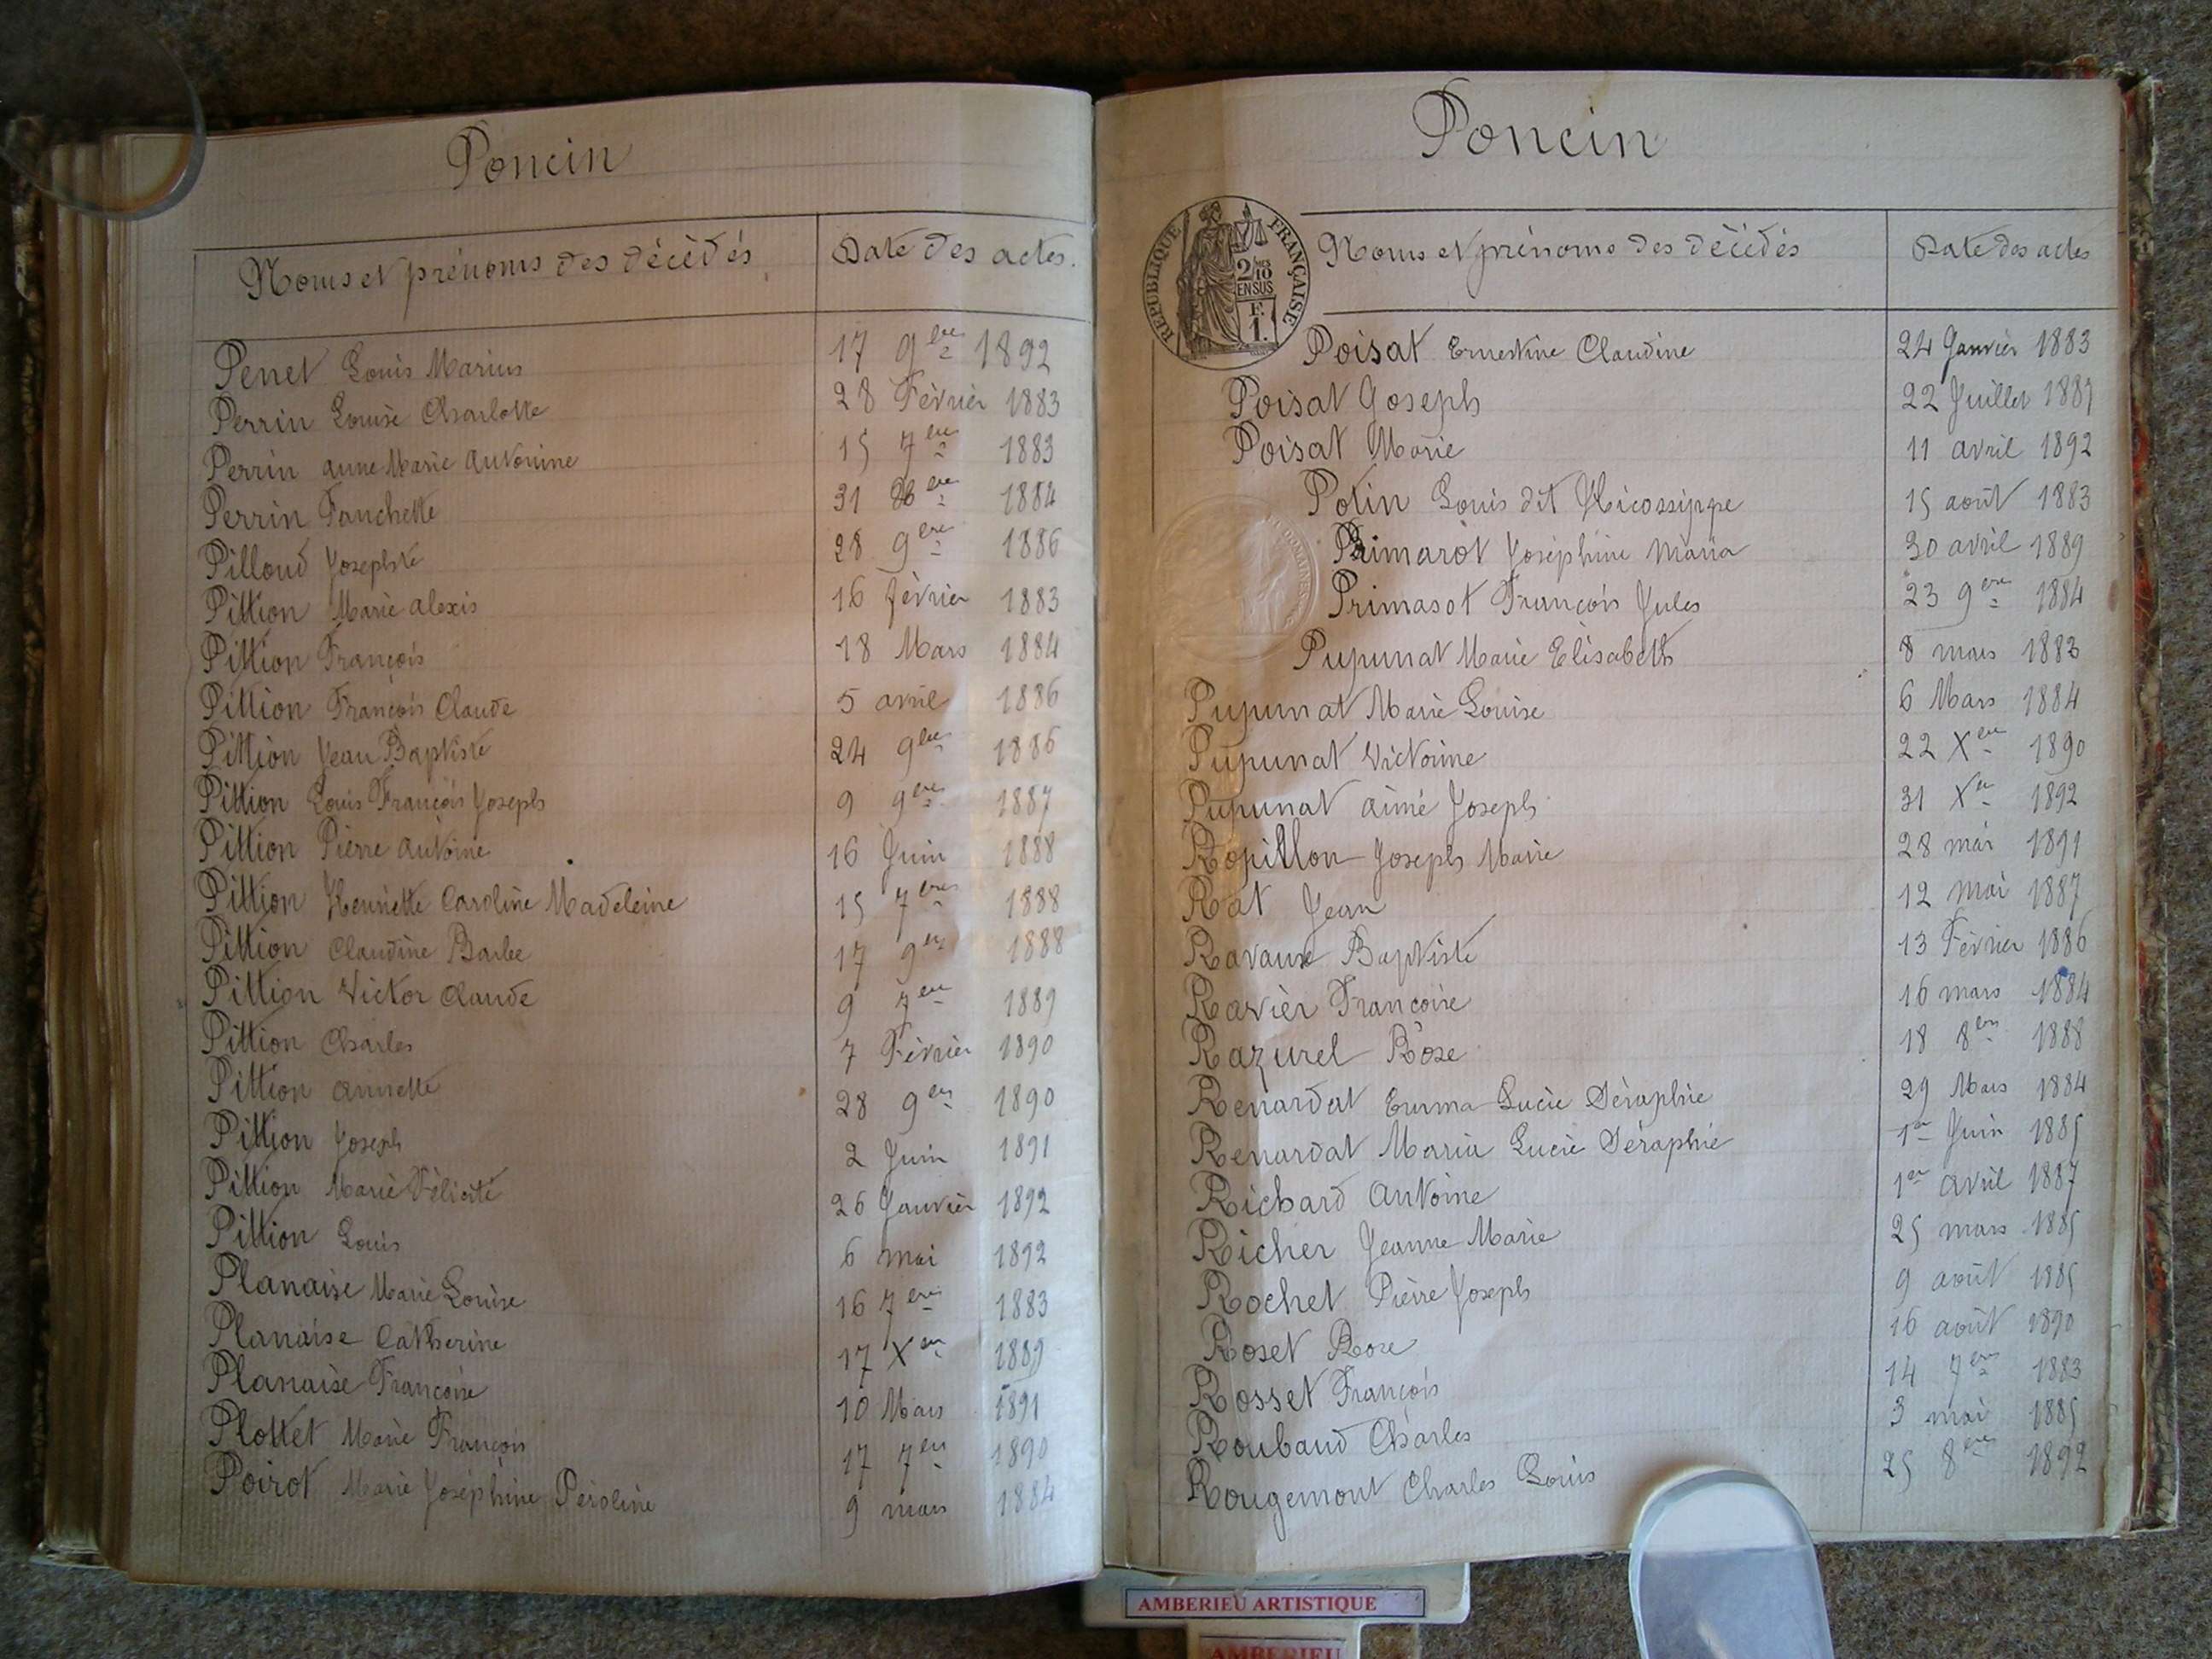 Poncin
Noms et prénoms des décédés Date des actes.
Penet Louis Marius 17 9bre 1892
Perrin Louise Charlotte 28 Février 1883
Perrin anne Marie antonine 15 7bre 1883
Perrin Fanchette 31 8bre 1884
Pilloud Josephte 28 9bre 1886
Pittion Marie alexis 16 février 1883
Pittion François 18 Mars 1884
Pittion François Claude 5 avril 1886
Pittion Jean Baptiste 24 9bre 1886
Pittion Louis François Joseph 9 9bre 1887
Pittion Pierre antoine 16 Juin 1888
Pittion Henriette Caroline Madeleine 15 7bre 1888
Pittion Claudine Barbe 17 9bre 1888
Pittion Victor Claude 9 7bre 1889
Pittion Charles 7 Février 1890
Pittion annette 28 9bre 1890
Pittion Joseph 2 Juin 1891
Pittion Marie Félicité 26 Janvier 1892
Pittion Louis 6 mai 1892
Planaise Marie Louise 16 7bre 1883
Planaise Catherine 17 Xbre 1889
Planaise Françoise 10 Mars 1891
Plottet Marie François 17 7bre 1890
Poirot Marie Joséphine Péroline 9 mars 1884
Poncin
REPUBLIQUE FRANÇAISE
2/10
EN SUS
F.
1.
Noms et prénoms des décédés Date des actes
Poisat Ernestine Claudine 24 Janvier 1883
Poisat Joseph 22 Juillet 1887
Poisat Marie 11 avril 1892
Potin Louis dit 15 août 1883
Primarot Joséphine Maria 30 avril 1889
Primasot François Jules 23 9bre 1884
Pupunat Marie Elisabeth 8 mars 1883
Pupunat Marie Louise 6 Mars 1884
Pupunat Victorine 22 Xbre 1890
Pupunat aimé Joseph 31 Xbre 1892
Ropillon Joseph Marie 28 mai 1891
Rat Jean 12 Mai 1887
Ravaux Baptiste 13 Février 1886
Ravier Françoise 16 mars 1884
Razurel Rose 18 8bre 1888
Renardat Emma Lucie Séraphie 29 Mars 1884
Renardat Maria Lucie Séraphie 1er Juin 1885
Richard antoine 1er avril 1887
Richer Jeanne Marie 25 mars 1885
Rochet Pierre Joseph 9 août 1885
Roset Rose 16 août 1890
Rosset François 14 7bre 1883
Roubaud Charles 3 mai 1885
Rougemont Charles Louis 25 8bre 1892
AMBERIEU ARTISTIQUE
AMBERIEU